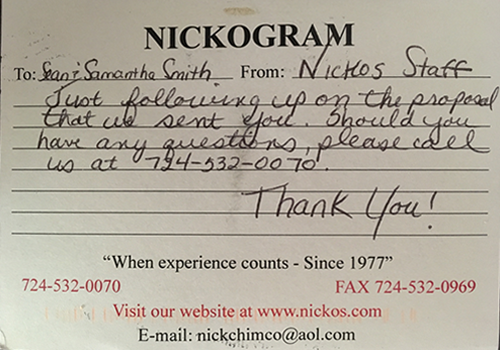 NICKOGRAM
To: Sean & Samantha Smith From: Nickos Staff
Just following up on the proposal
that we sent you. Should you
have any questions, please call
us at 724-532-0070.
Thank You!
"When experience counts - Since 1977"
724-532-0070 FAX 724-532-0969
Visit our website at www.nickos.com
E-mail: nickchimco@aol.com